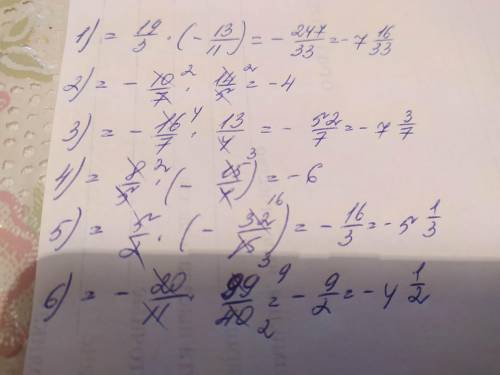 1) = 19/3 · (- 13/11) = - 247/33 = -7 16/33
2) = - 10/7 2 · 14/5 2 = -4
3) = - 16/7 4 · 13/4 = - 52/7 = -7 3/7
4) = 8/5 2 · (- 15/4 3) = -6
5) = 5/2 · (- 32/15 16 3) = - 16/3 = -5 1/3
6) = - 20/11 · 99/40 9 2 = - 9/2 = -4 1/2